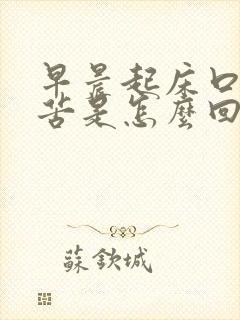 早晨起床口
苦是怎麼回
蘇欽城